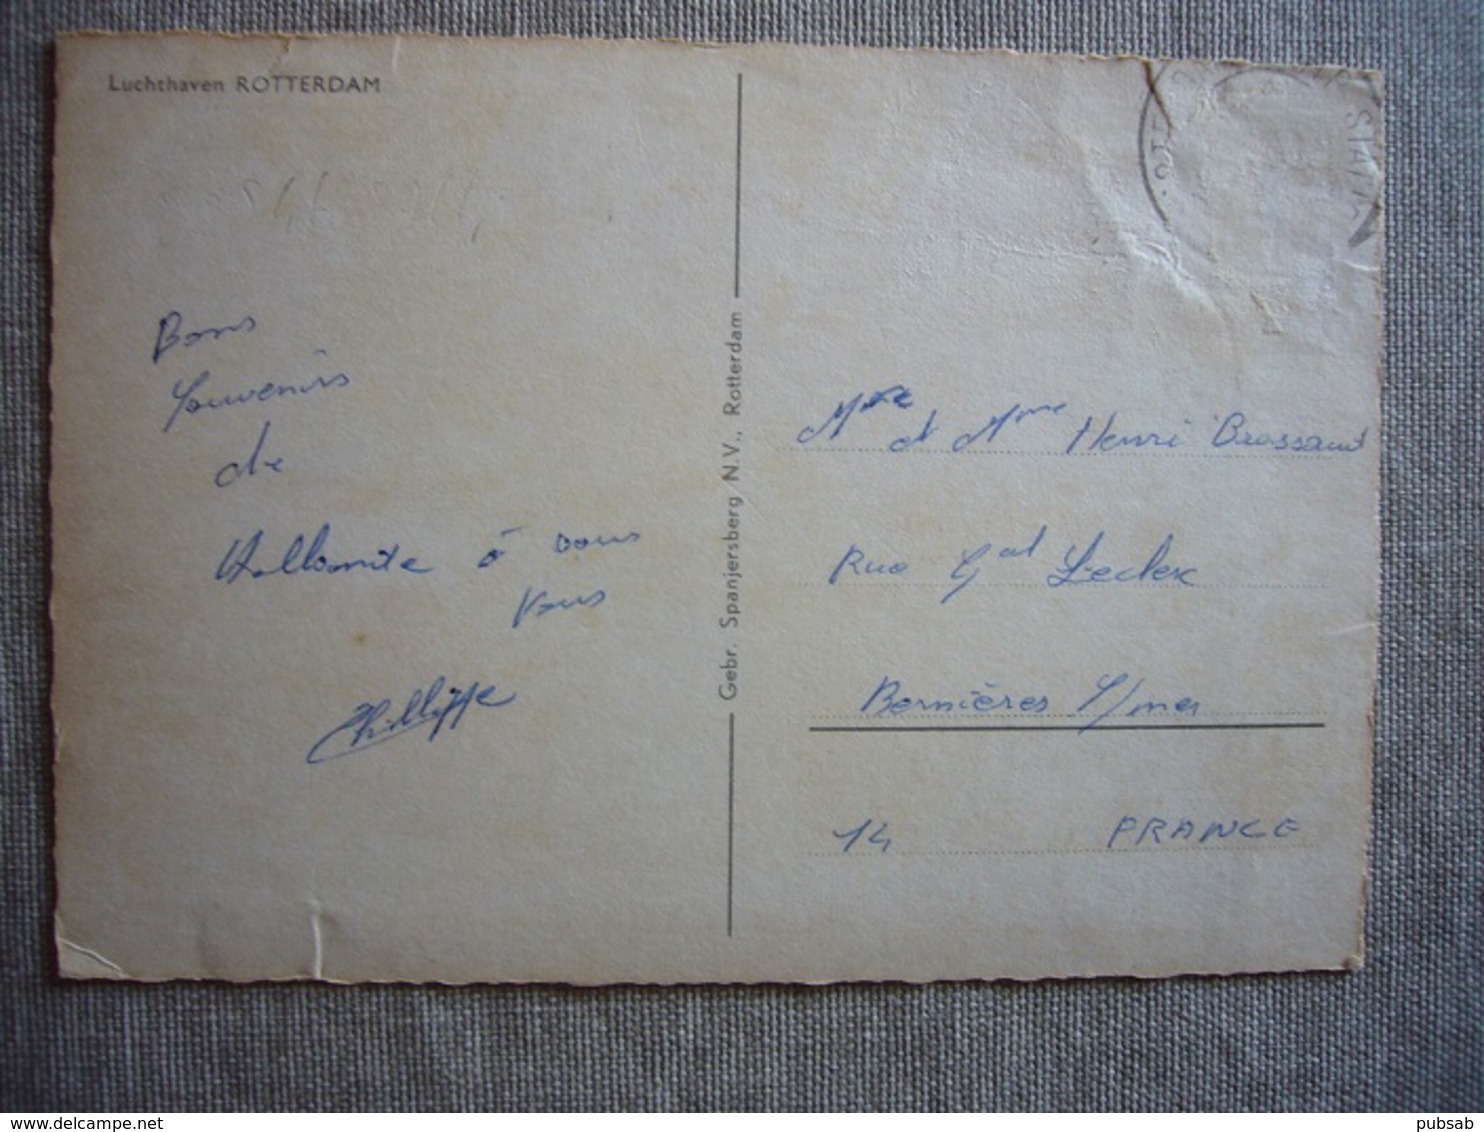 Luchthaven ROTTERDAM
Bons
Souvenirs
de
Hollande à vous
tous
Philippe
Gebr. Spanjersberg N.V., Rotterdam
Mr et Mme Henri Brossard
Rue Gal Leclerc
Bernières S/mer
14 FRANCE
pubsab